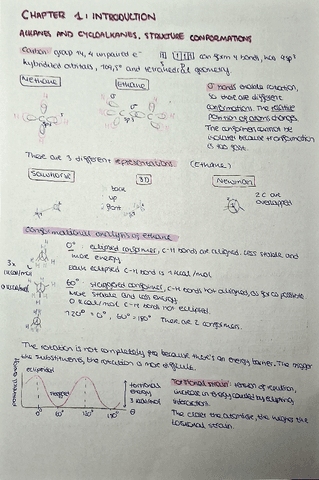 CHAPTER 1: INTRODUCTION
ALKANES AND CYCLOALKANES, STRUCTURE CONFORMATIONS
Carbon: group 14, 4 unpaired e⁻ can form 4 bonds, has 4 sp³
hybridized orbitals, 109,5° and tetrahedral geometry.
Methane
Ethane
σ bonds enable rotation,
so there are different
conformations. The relative
position of atoms changes.
The conformers cannot be
isolated because transformation
is too fast.
There are 3 different representations. (Ethane)
Sawhorse
3D
Newman
back
up
front
2 C are
overlapped
Conformational analysis of ethane
0°: eclipsed conformer, C-H bonds are aligned. Less stable and
more energy.
Each eclipsed C-H bond is 1 kcal/mol
3x
1 kcal/mol
0 kcal/mol
60° staggered conformer, C-H bonds not aligned, as far as possible
more stable and less energy.
0 kcal/mol C-H bonds not eclipsed.
120° = 0°, 60° = 180° There are 2 conformers.
The rotation is not completely free because there's an energy barrier. The bigger
the substituents, the rotation is more difficult.
eclipsed
potential energy
torsional
energy
3 kcal/mol
0° 60° 120° 180° θ
Torsional strain:
increase in energy caused by eclipsing
interactions.
The closer the atoms are, the higher the
torsional strain.